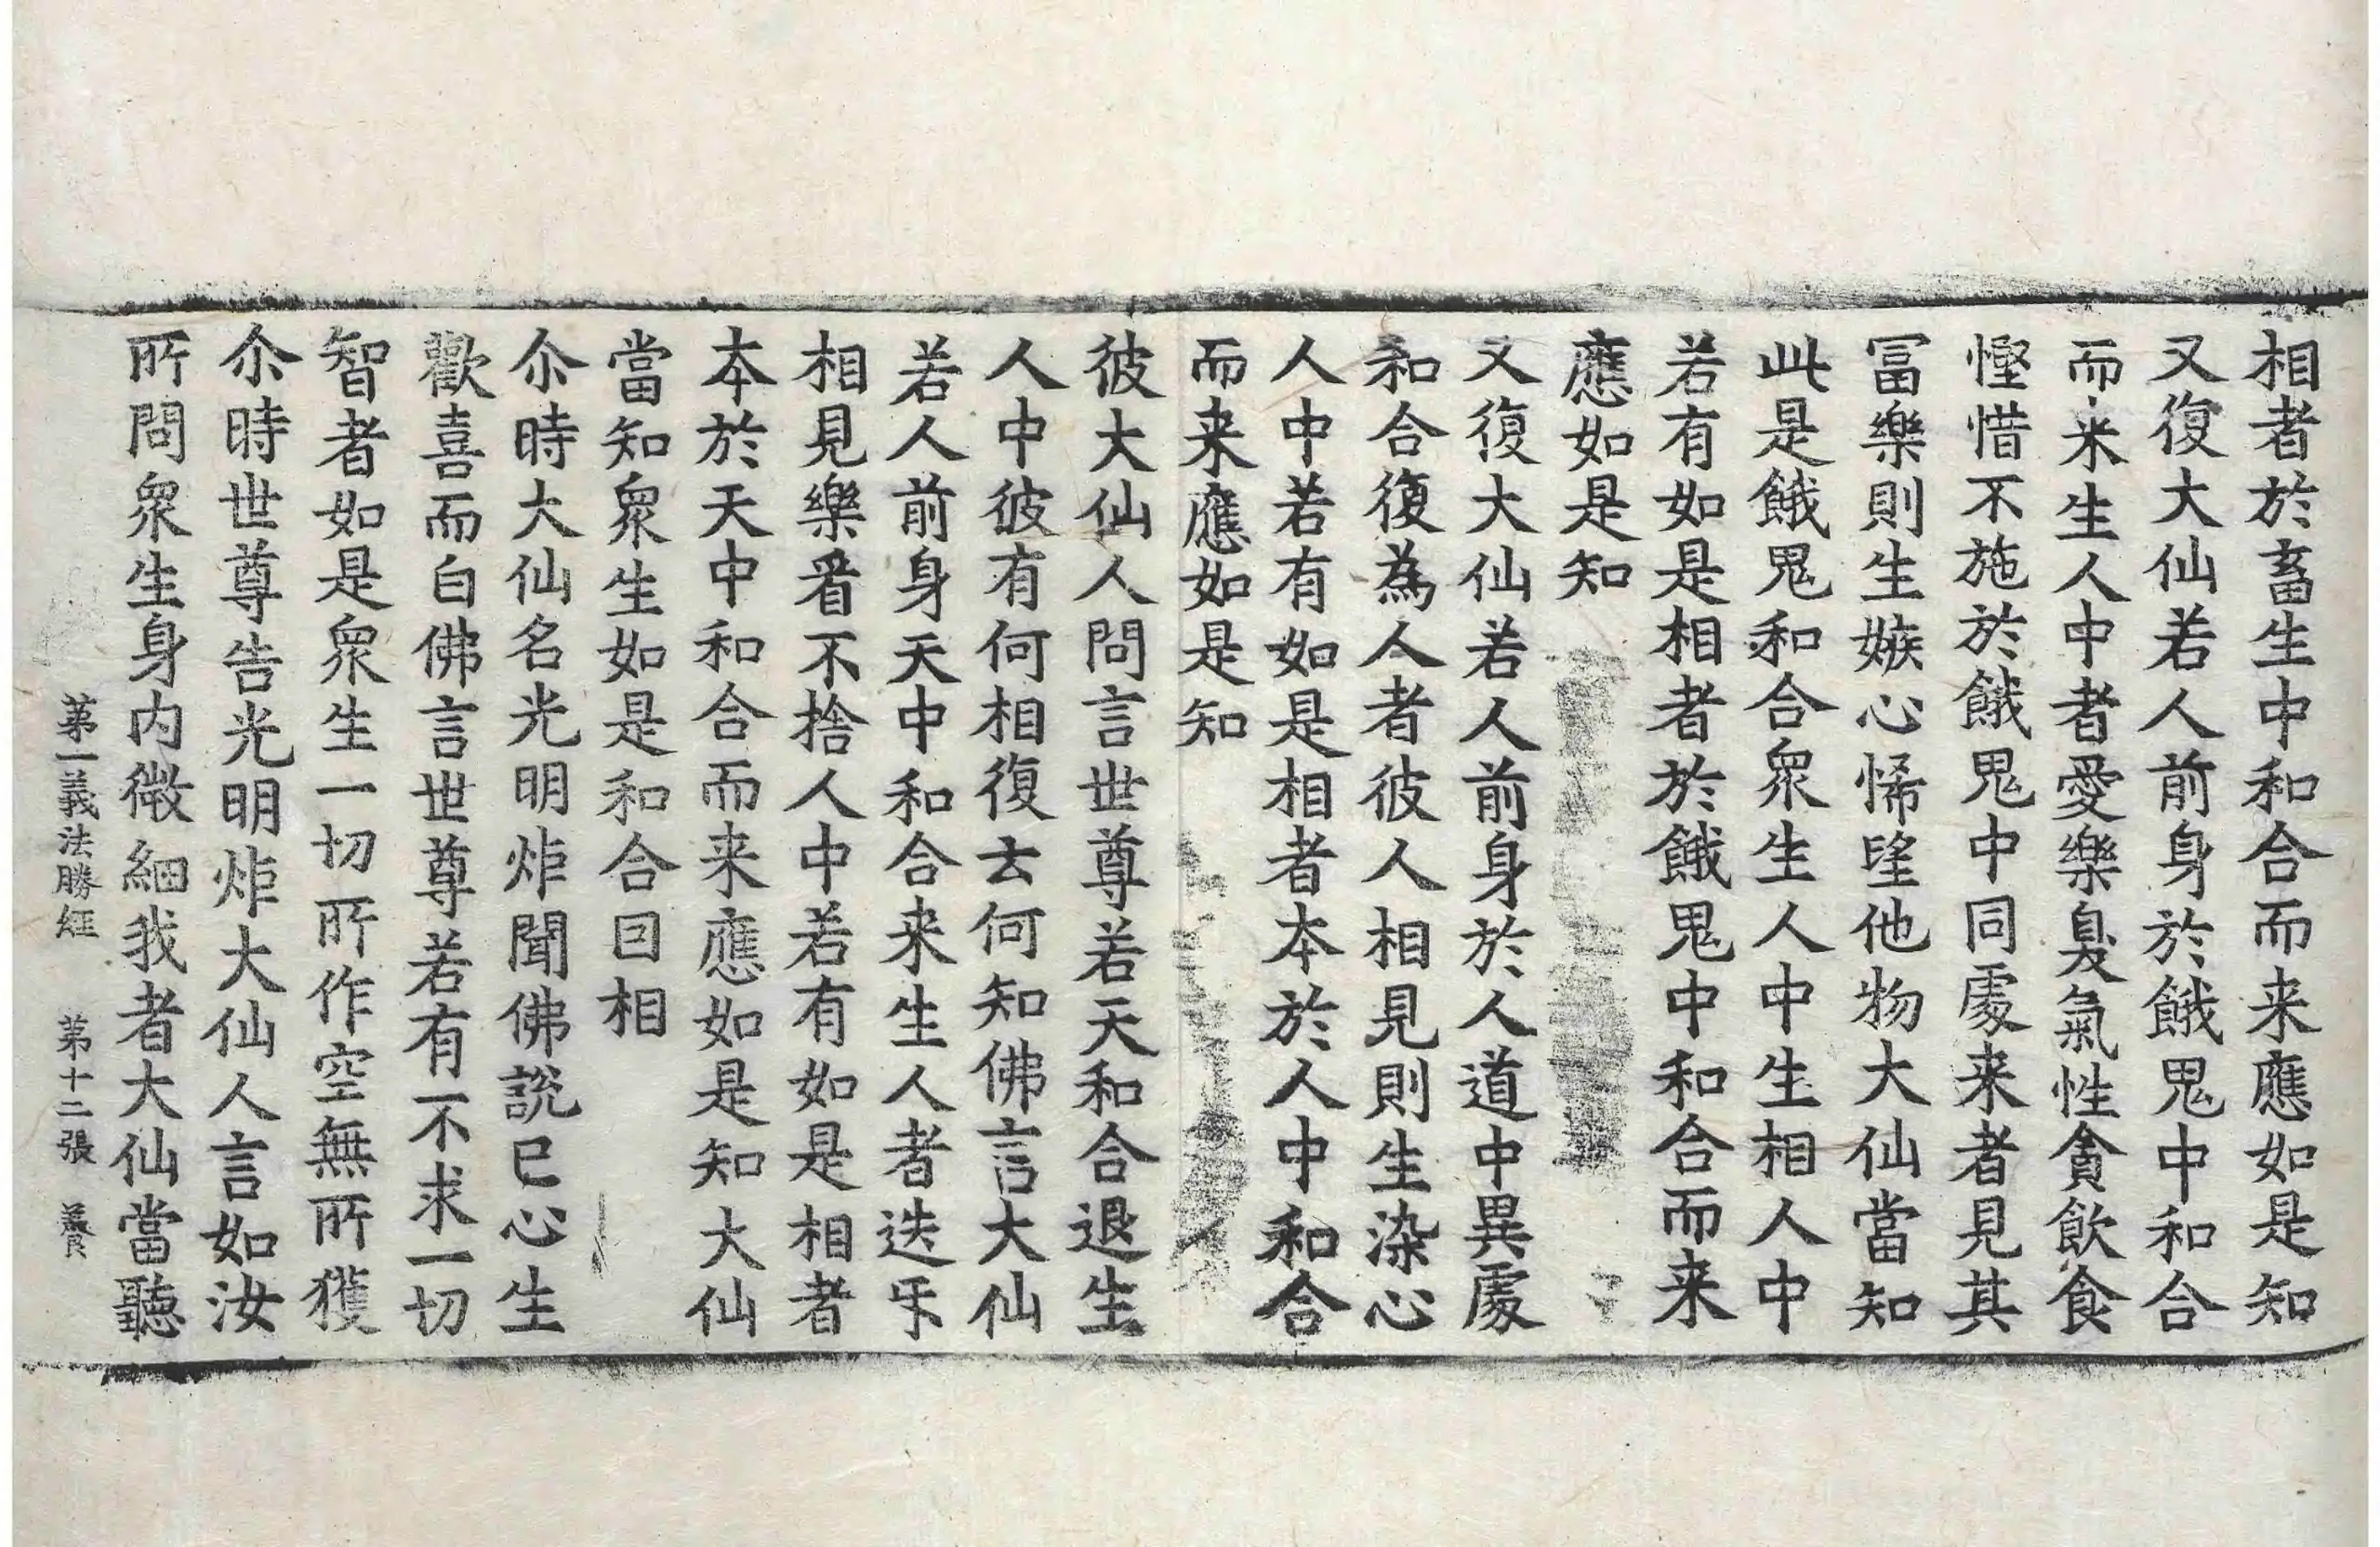 相者於畜生中和合而来應如是知
又復大仙若人前身於餓鬼中和合
而来生人中者愛樂臭氣性貪飲食
慳惜不施於餓鬼中同處来者見其
冨樂則生嫉心悕望他物大仙當知
此是餓鬼和合衆生人中生相人中
若有如是相者於餓鬼中和合而来
應如是知
又復大仙若人前身於人道中異處
和合復為人者彼人相見則生染心
人中若有如是相者本於人中和合
而来應如是知
彼大仙人問言世尊若天和合退生
人中彼有何相復云何知佛言大仙
若人前身天中和合来生人者迭㸦
相見樂看不捨人中若有如是相者
本於天中和合而来應如是知大仙
當知衆生如是和合囙相
尒時大仙名光明炬聞佛說已心生
歡喜而白佛言世尊若有不求一切
智者如是衆生一切所作空無所獲
尒時世尊告光明炬大仙人言如汝
所問衆生身内微細我者大仙當聽
第一義法勝經 第十二張 養